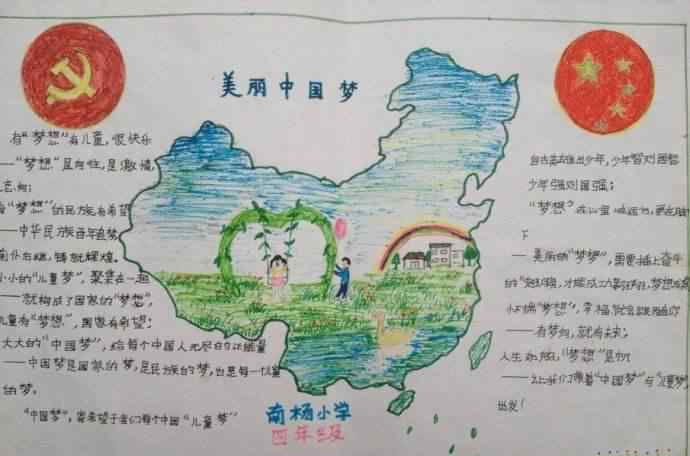 美丽中国梦
有“梦想”有儿童，很快乐
——“梦想”是向往，是激情，
“梦想”的民族有希望
——中华民族百年追梦
铸就辉煌。
小小的“儿童梦”，聚集在一起
——就构成了国家的“梦想”，
儿童有“梦想”，国家有希望；
大大的“中国梦”，给每个中国人无尽的正能量
——中国梦是国家的梦，是民族的梦，也是每一个
的梦。
“中国梦”，寄希望于我们每个中国“儿童梦”
自古英雄出少年，少年智则国智
少年强则国强；
“梦想”在心里
下
——美丽的“梦梦”，需要插上奋斗
的“翅膀”，才能成
小小的“梦想”，幸福就会
——有梦想，就有未来；
人生“梦想”是帆
——让我们了带着“中国梦”与“儿童梦”
出发！
南杨小学
四年级